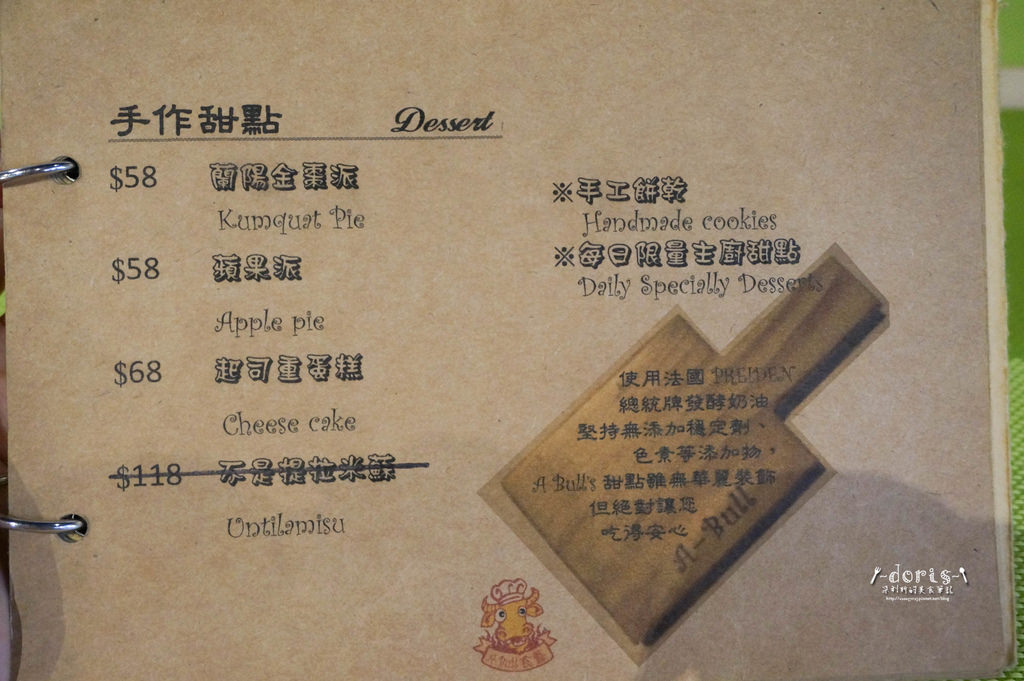 手作甜點 Dessert
$58 蘭陽金棗派
Kumquat Pie
$58 蘋果派
Apple pie
$68 起司重蛋糕
Cheese cake
$118 不是提拉米蘇
Untilamisu
※手工餅乾
Handmade cookies
※每日限量主廚甜點
Daily Specially Desserts
使用法國 PREIDEN
總統牌發酵奶油
堅持無添加穩定劑、
色素等添加物，
A Bull's 甜點雖無華麗裝飾
但絕對讓您
吃得安心
A-Bull
-doris-